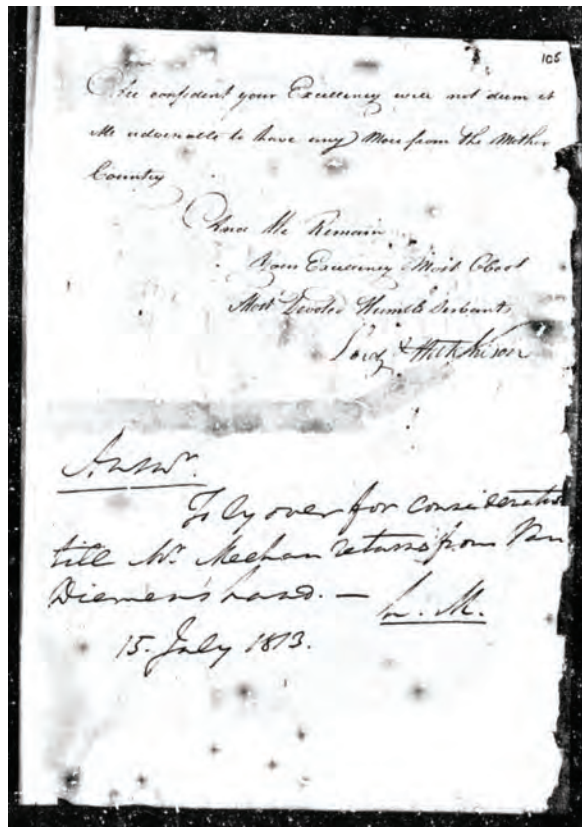 105
confident your Excellency will not deem it
to have any More from the Mother
Country
We Remain
Your Excellency Most Obedt
Most Devoted Humble Servants
Lord & Hutchison
Answr.
To ly over for consideration
till Mr. Meehan returns from Van
Diemen's Land. — L. M.
15. July 1813.